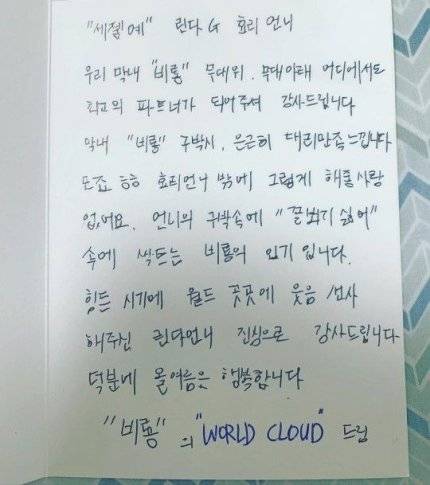 "세젤예" 린다G 효리 언니
우리 막내 "비룡" 무대위, 무대아래 어디에서도
최고의 파트너가 되어주셔 감사드립니다
막내 "비룡" 구박시, 은근히 대리만족느낍니다
도죠 ㅎㅎ 효리언니 밖에 그렇게 해줄 사람
없어요. 언니의 구박속에 "꼴뵈기 싫어"
속에 싹트는 비룡의 인기 입니다.
힘든 시기에 월드 곳곳에 웃음 선사
해주신 린다언니 진심으로 감사드립니다
덕분에 올여름은 행복합니다
"비룡" 의 "WORLD CLOUD" 드림